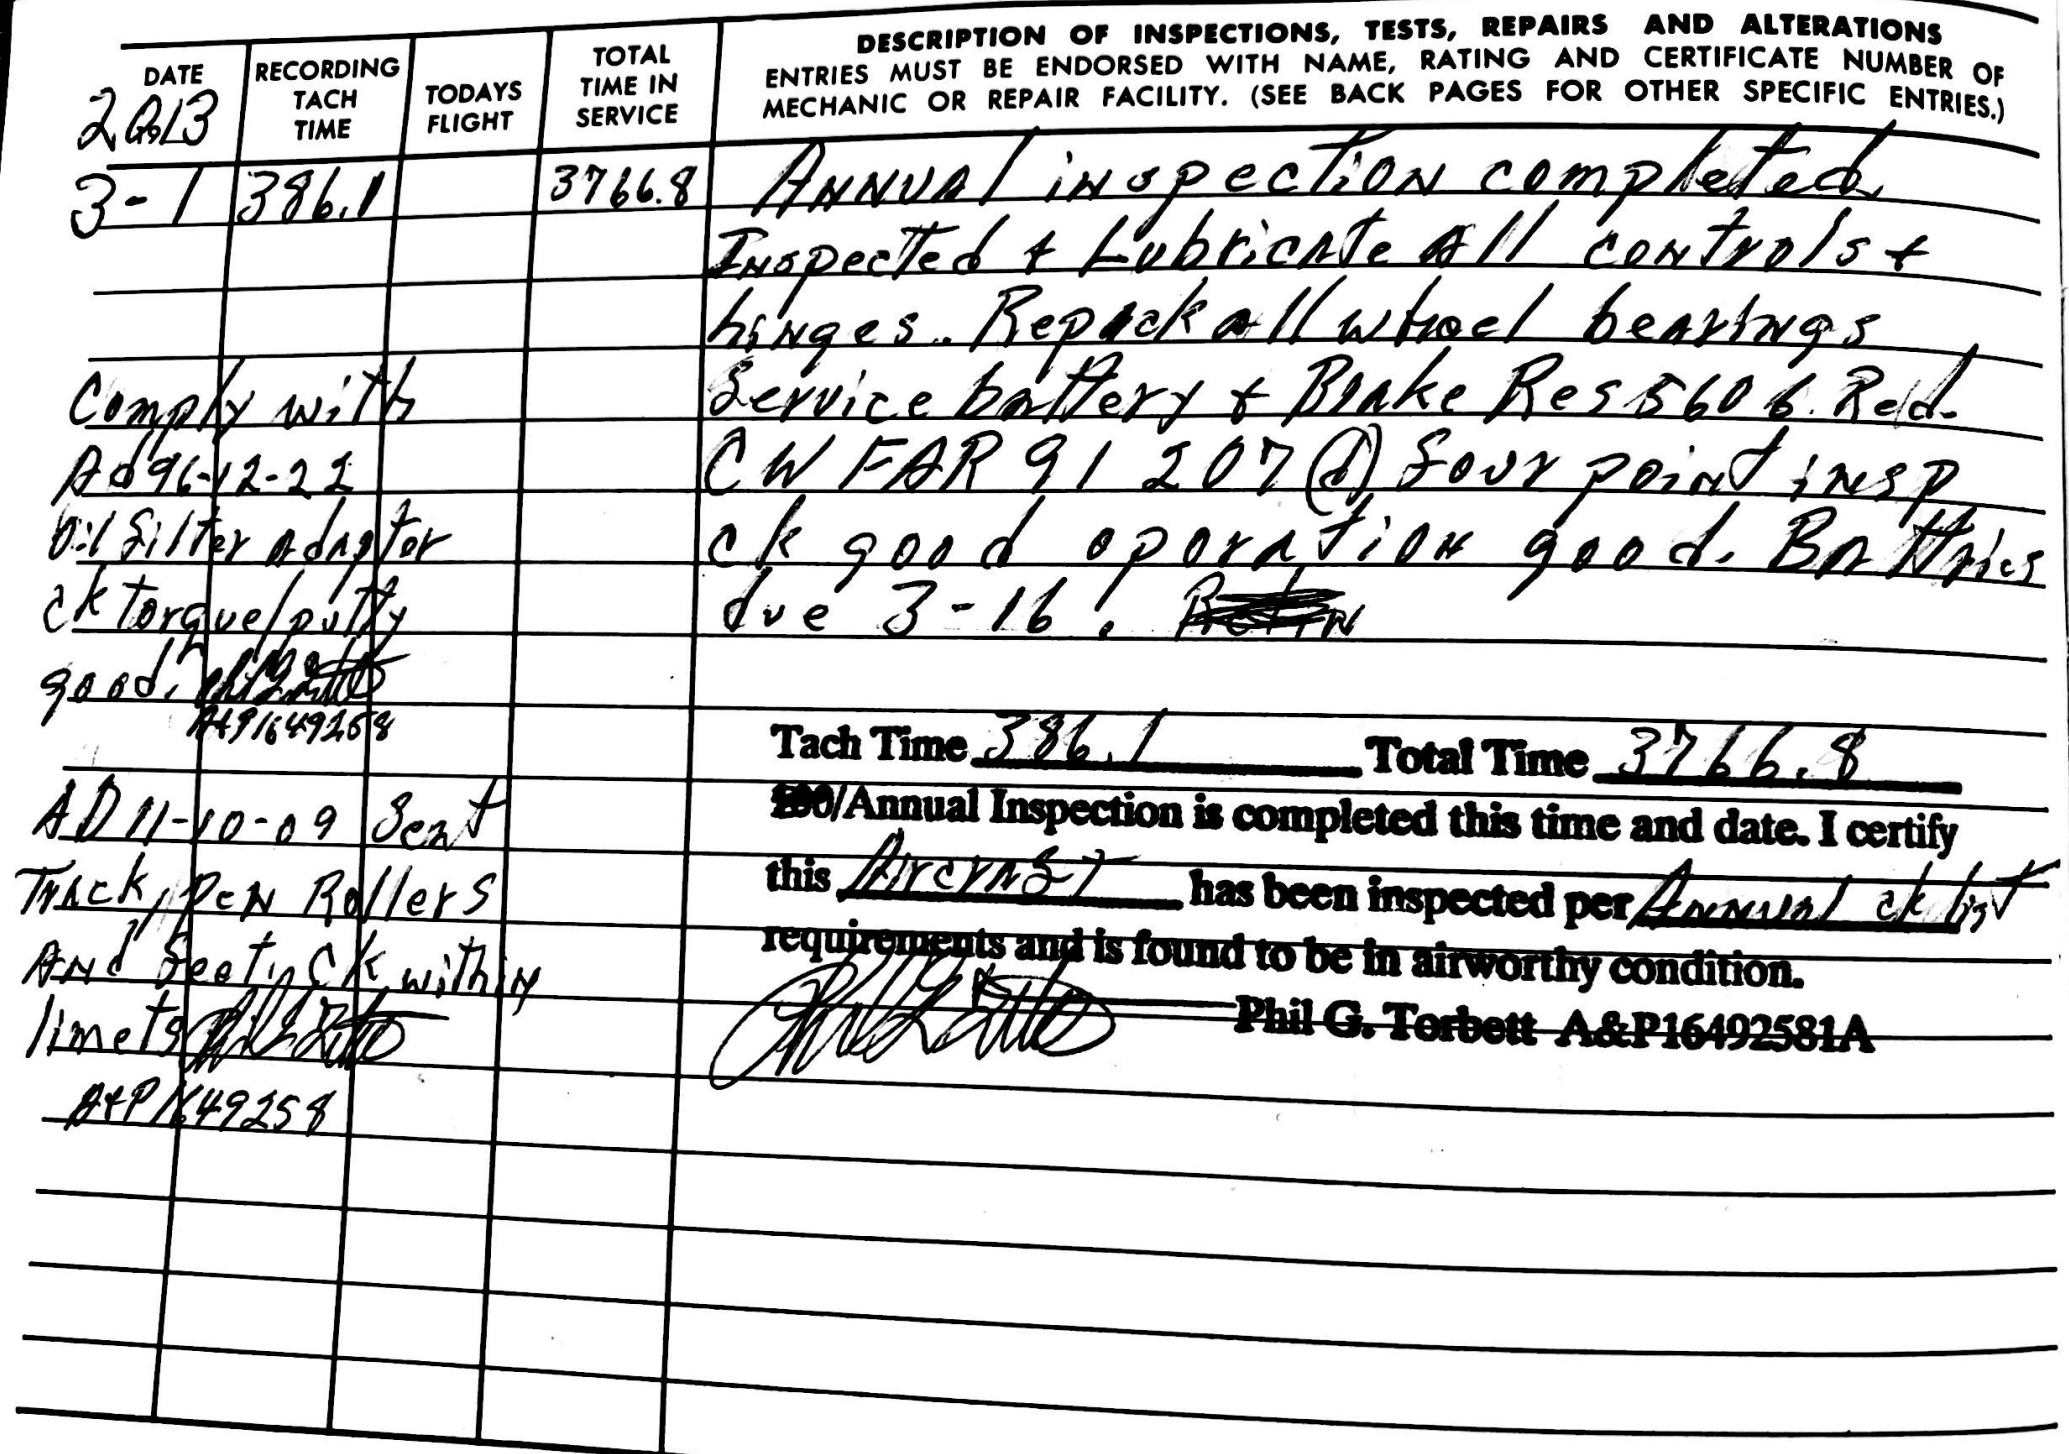 DATE
2013
RECORDING
TACH
TIME
TODAYS
FLIGHT
TOTAL
TIME IN
SERVICE
DESCRIPTION OF INSPECTIONS, TESTS, REPAIRS AND ALTERATIONS
ENTRIES MUST BE ENDORSED WITH NAME, RATING AND CERTIFICATE NUMBER OF
MECHANIC OR REPAIR FACILITY. (SEE BACK PAGES FOR OTHER SPECIFIC ENTRIES.)
3-1 386.1 3766.8 Annual inspection completed.
Inspected + Lubricate All controls +
hinges. Repack all wheel bearings
Service battery + Brake Res 5606 Red.
CW FAR 91 207 (d) four point insp
ck good operation good. Battries
due 3-16.
Comply with
Ad 96-12-22
oil filter adaptor
ck torque/putty
good.
A+P1649258
AD 11-10-09 Seat
Track, Pen Rollers
And Seat, Ck within
limets
A+P 1649258
Tach Time 386.1 Total Time 3766.8
100/Annual Inspection is completed this time and date. I certify
this Aircraft has been inspected per Annual ck list
requirements and is found to be in airworthy condition.
Phil G. Torbett A&P16492581A